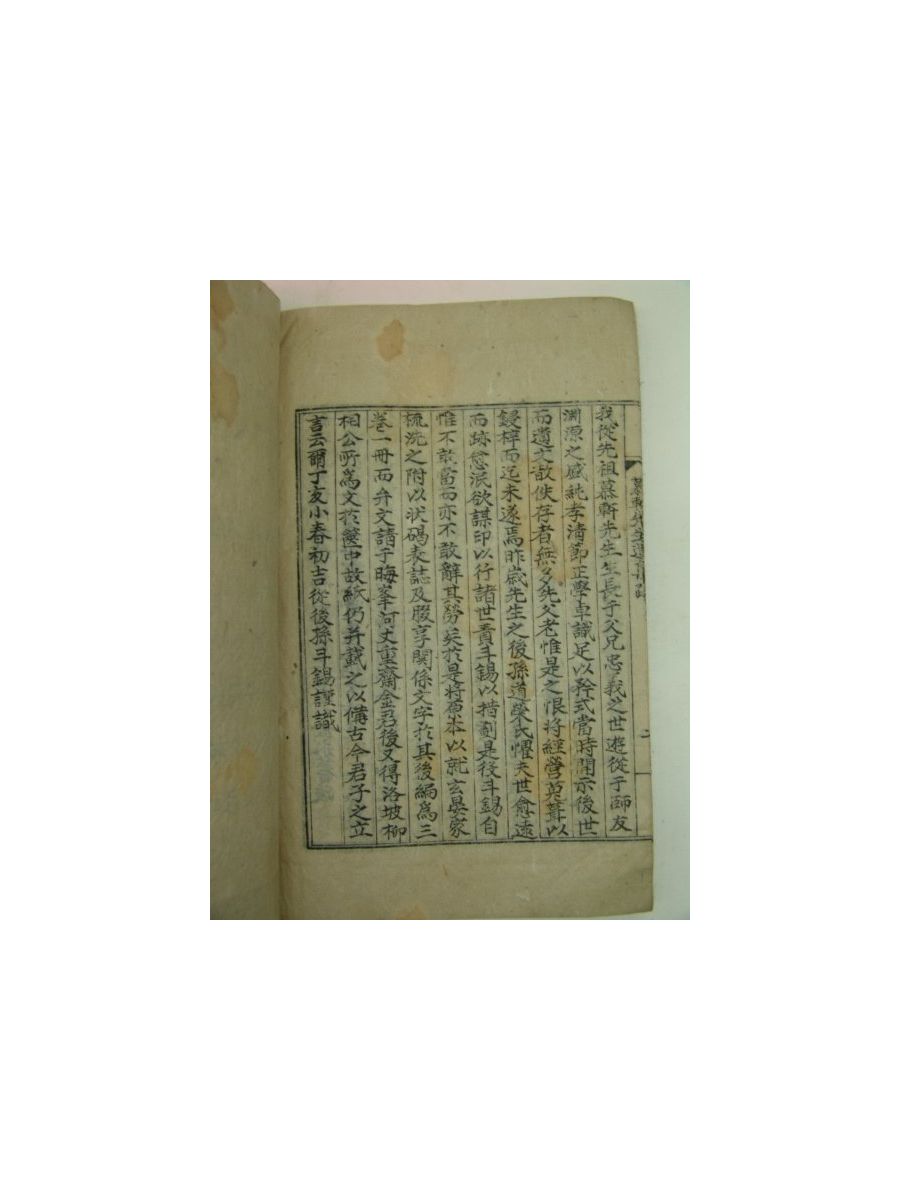 慕軒先生遺集 跋
二
我從先祖慕軒先生生長于父兄忠義之世遊從于師友
淵源之盛純孝淸節正學卓識足以矜式當時開示後世
而遺文散佚存者無多先父老惟是之恨將經營蒐葺以
鋟梓而迄未遂焉昨歲先生之後孫道榮氏懼夫世愈遠
而跡愈泯欲謀印以行諸世責斗錫以措劃是役斗錫自
惟不敢當而亦不敢辭其勞矣於是將原本以就玄晏家
梳洗之附以狀碣表誌及腏享関係文字於其後編爲三
卷一冊而弁文請于晦峯河丈重齋金君後又得洛坡柳
相公所爲文於篋中故紙仍并載之以備古今君子之立
言云爾丁亥小春初吉從後孫斗錫謹識